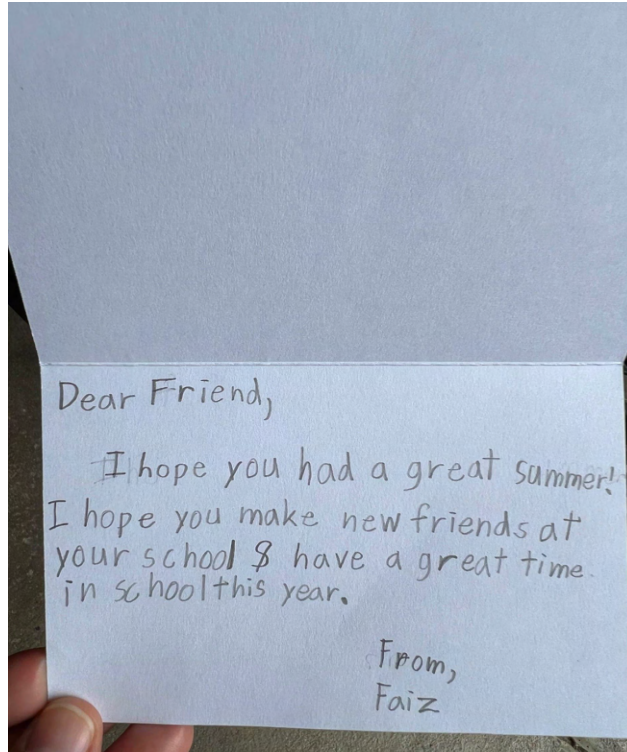 Dear Friend,
I hope you had a great summer!
I hope you make new friends at
your school & have a great time
in school this year.
From,
Faiz